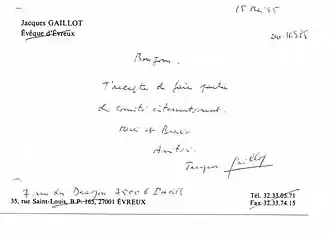 Jacques GAILLOT
Évêque d'Évreux
15 Mai 95
Bonjour.
J'accepte de faire partie
du comité international.
Merci et Bravo
Amitiés
Jacques Gaillot
7 rue du Dragon 75006 PARIS
35, rue Saint-Louis, B.P. 165, 27001 ÉVREUX
Tél. 32.33.05.71
Fax 32.33.74.15